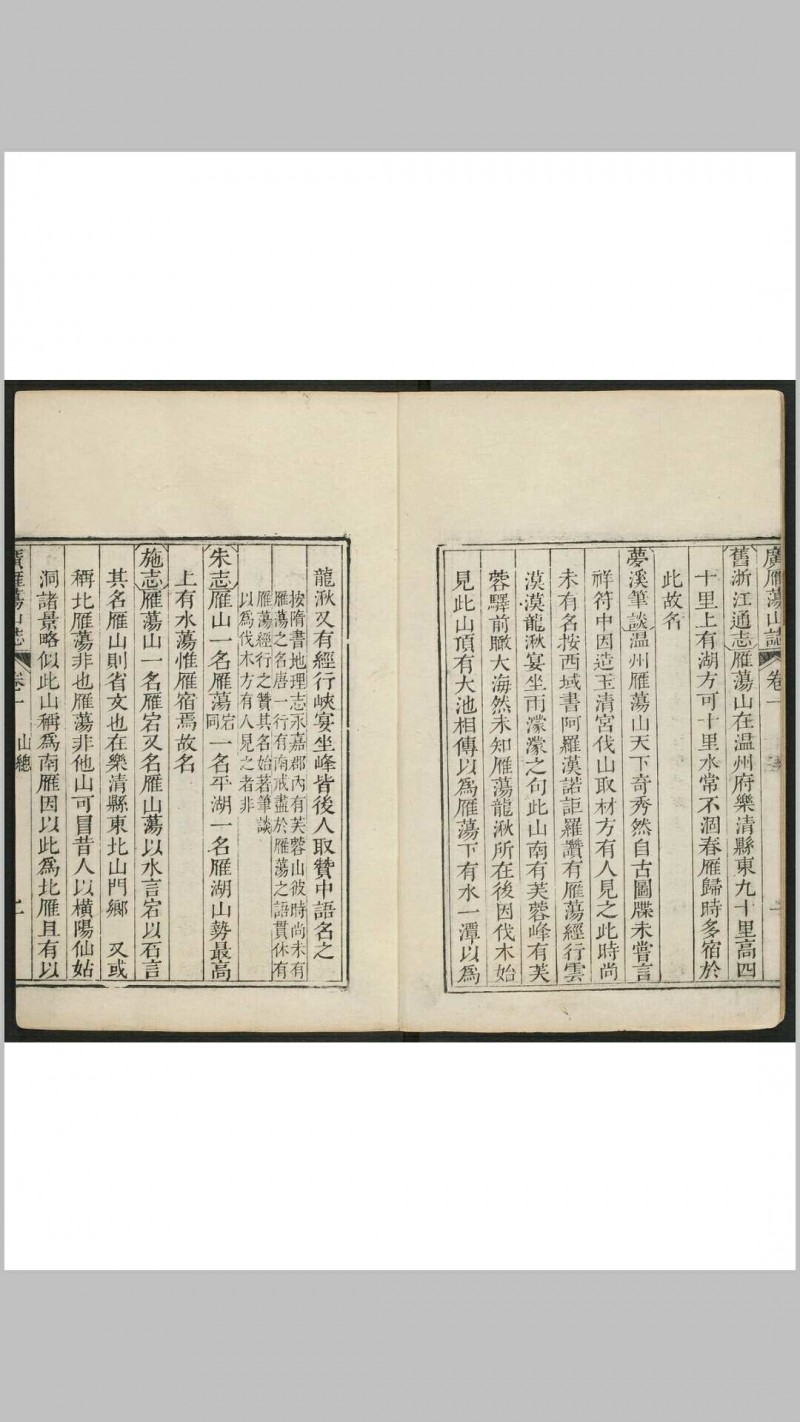 廣雁蕩山誌 卷一 一
舊浙江通志雁蕩山在温州府樂清縣東九十里高四
十里上有湖方可十里水常不涸春雁歸時多宿於
此故名
夢溪筆談温州雁蕩山天下奇秀然自古圖牒未嘗言
祥符中因造玉清宮伐山取材方有人見之此時尚
未有名按西域書阿羅漢諾詎羅讚有雁蕩經行雲
漠漠龍湫宴坐雨濛濛之句此山南有芙蓉峰有芙
蓉驛前瞰大海然未知雁蕩龍湫所在後因伐木始
見此山頂有大池相傳以爲雁蕩下有水一潭以爲
龍湫又有經行峽宴坐峰皆後人取贊中語名之
按隋書地理志永嘉郡內有芙蓉山彼時尚未有
雁蕩之名唐一行有南戒盡於雁蕩之語貫休有
雁蕩經行之贊其名始著筆談
以爲伐木方有人見之者非
朱志雁山一名雁蕩宕同一名平湖一名雁湖山勢最高
上有水蕩惟雁宿焉故名
施志雁蕩山一名雁宕又名雁山蕩以水言宕以石言
其名雁山則省文也在樂清縣東北山門鄉 又或
稱北雁蕩非也雁蕩非他山可冒昔人以橫陽仙姑
洞諸景略似此山稱爲南雁因以此爲北雁且有以
廣雁蕩山誌 卷一 山總 二